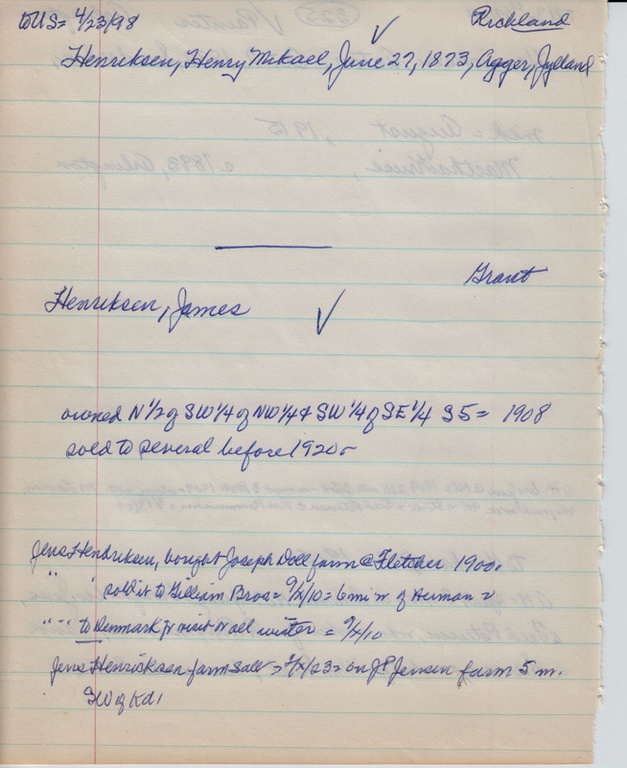 to US = 4/23/98 Richland
Henriksen, Henry Mikael, June 27, 1873, Agger, Jylland
Grant
Henriksen, James
owned N 1/2 of SW 1/4 of NW 1/4 & SW 1/4 of SE 1/4 S5 = 1908
sold to several before 1920
Jens Hendriksen, bought Joseph Doll farm @ Fletcher 1900.
" " sold it to Gilliam Bros = 9/ /10 = 6 mi w of Herman =
" " = to Denmark for visit all winter = 9/x/10
Jens Henricksen farm sale = /x/23 = on J P Jensen farm 5 m.
SW of Kd